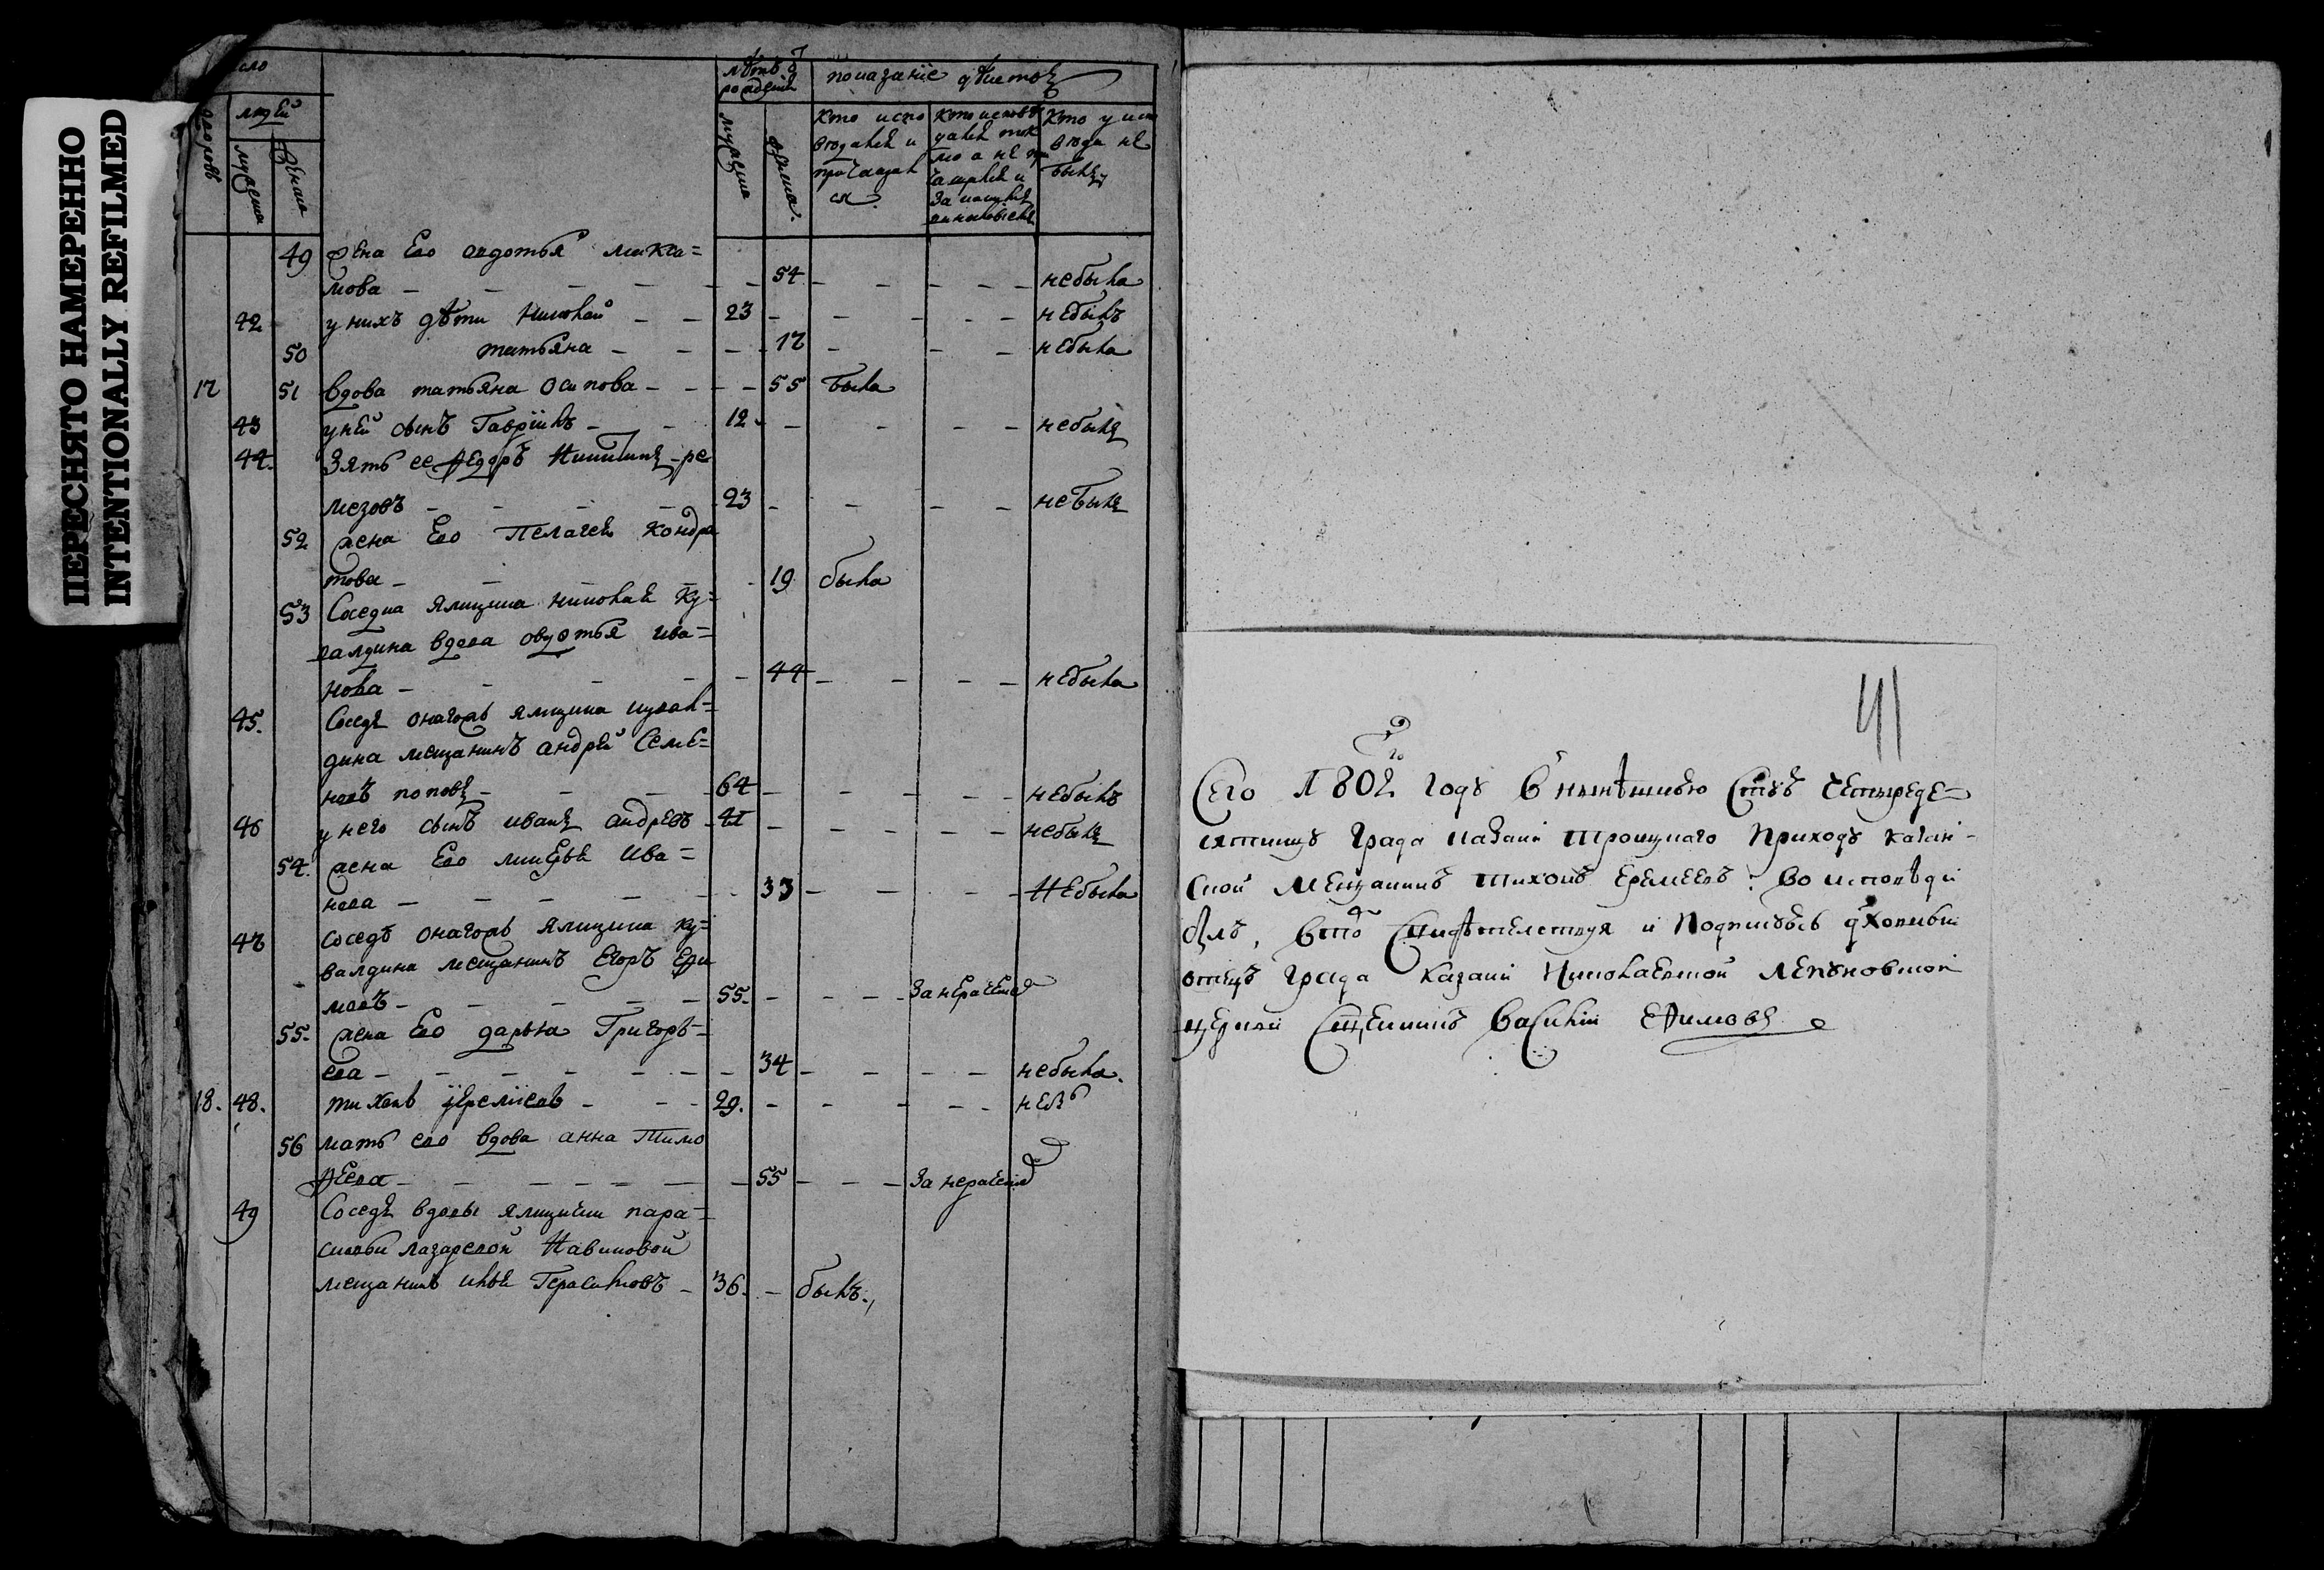 ПЕРЕСНЯТО НАМЕРЕННО
INTENTIONALLY REFILMED
людей
мужеска
женска
показание действъ
мужеска
женска
Кто испо
ведался и
причащал
ся
Кто исповѣ
дался ток
мо а не при
Кто у исп
веди не
былъ
49 жена Его авдотья макси=
мова 54 небыла
42 у нихъ дѣти николай 23 небылъ
50 татьяна 17 небыла
17 51 вдова татьяна Осипова 55 была
43 у ней сынъ Гаврiилъ 12 небылъ
44. Зять ее Федоръ никитинъ ре
мезовъ 23 небылъ
52 жена Его Пелагея кондра
това 19 была
53 Соседка ямщика николая ку=
валдина вдова овдотья ива=
нова 44 небыла
45. Соседъ онагожъ ямщика кувал=
дина мещанинъ андрей Семе=
новъ поповъ 64 небылъ
46 у него сынъ иванъ андревъ 41 небылъ
54. жена Его ива=
нова 33 Небыла
47 соседъ онагожъ ямщика ку=
валдина мещанинъ Егоръ Ефи
мовъ 55. За нерачениемъ
55. жена Его дарья Григорь=
ева 34 небыла.
18. 48. тихонъ iеремiевъ 29. небы
56 мать его вдова анна Тимо
феева 55 За нерачением
49 Соседъ вдовы ямщички пара=
сковьи лазаревой
мещанинъ илья Герасимовъ 36. былъ.
41
Сего 1802 го году в нынѣшнюю Стую Четыреде=
сятницу града казани троицкаго Приходу казан-
ской Мещанинъ Тихонъ Еремеевъ: во исповѣди
былъ, в томъ Свидѣтелствуя и Подписуюсь дховный
отецъ града Казани Николаевской Ляпуновской
церкви Сщенникъ Василiй Ефимовъ